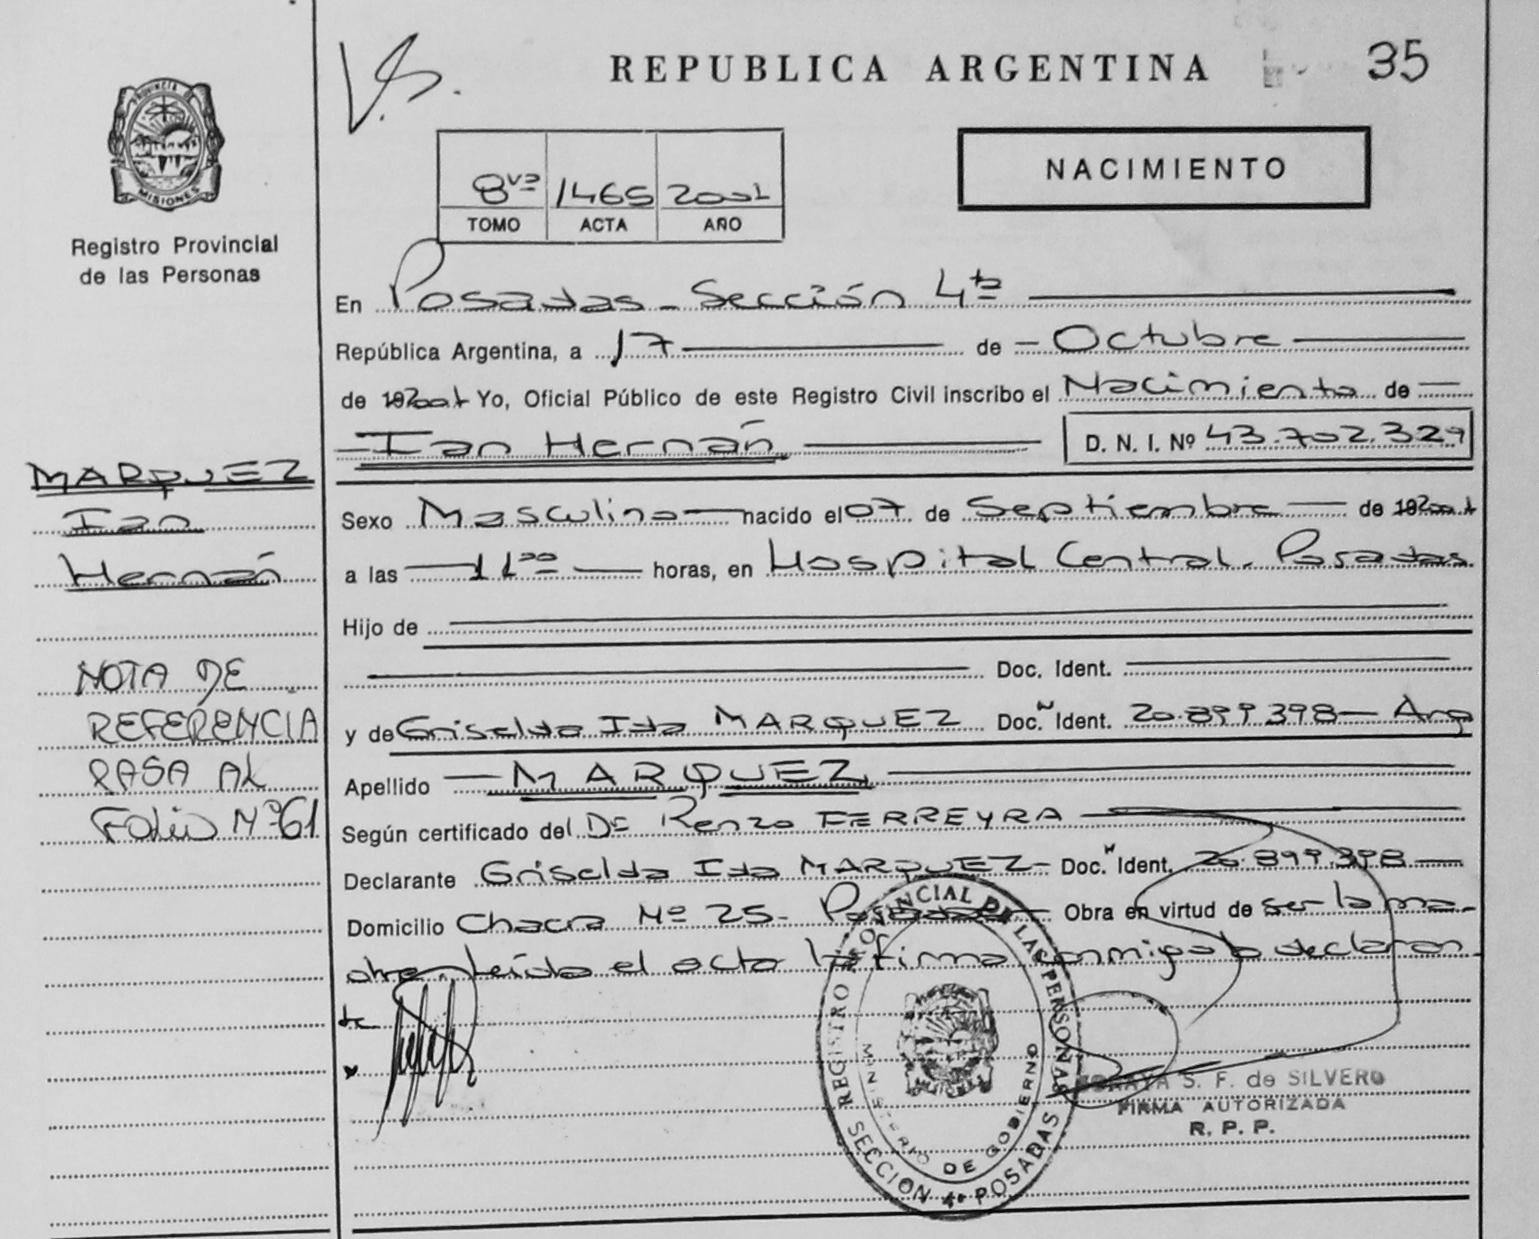 V.S.
REPUBLICA ARGENTINA 35
PROVINCIA DE
MISIONES
Registro Provincial
de las Personas
8vo 1465 2001
TOMO ACTA AÑO
NACIMIENTO
En Posadas - Sección 4ta
República Argentina, a 17 de Octubre
de 2001 Yo, Oficial Público de este Registro Civil inscribo el Nacimiento de
Ian Hernán D. N. I. Nº 43.702.329
Sexo Masculino nacido el 07 de Septiembre de 2001
a las 11 00 horas, en Hospital Central. Posadas.
Hijo de
Doc. Ident.
y de Griselda Ida MARQUEZ Doc. Ident. 20.899.398 - Arg
Apellido MARQUEZ
Según certificado del Dr Renzo FERREYRA
Declarante Griselda Ida MARQUEZ - Doc. Ident. 20.899.398
Domicilio Chacra Nº 25 - Posadas Obra en virtud de ser la ma-
dre. leída el acta la firma conmigo la declaran-
te
MARQUEZ
Ian
Hernán
NOTA DE
REFERENCIA
PASA AL
Folio Nº 61
REGISTRO PROVINCIAL DE LAS PERSONAS
MINISTERIO DE GOBIERNO
SECCION 4a POSADAS
SORAYA S. F. de SILVERO
FIRMA AUTORIZADA
R. P. P.